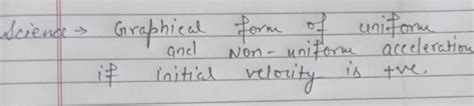 Science → Graphical form of uniform
and Non-uniform acceleration
if initial velocity is +ve.